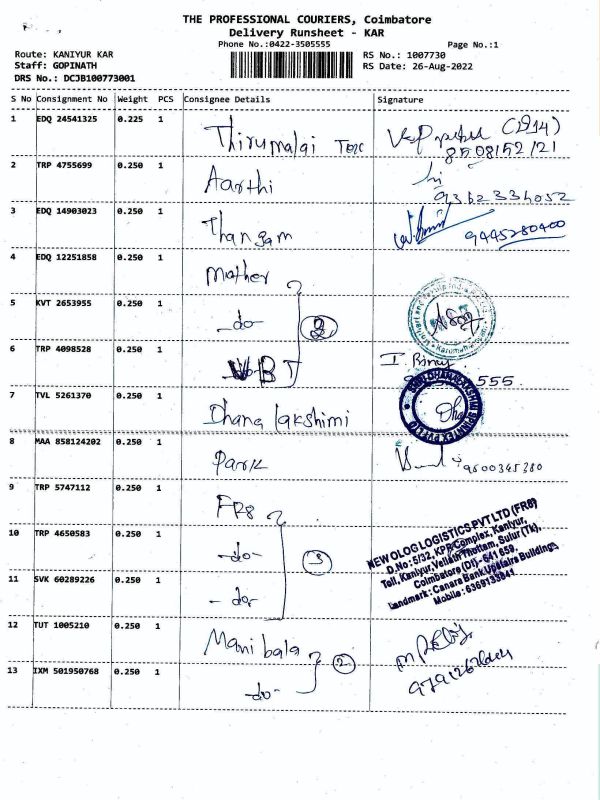 THE PROFESSIONAL COURIERS, Coimbatore
Delivery Runsheet - KAR
Phone No.:0422-3505555
Page No.:1
Route: KANIYUR KAR
Staff: GOPINATH
DRS No.: DCJB100773001
RS No.: 1007730
RS Date: 26-Aug-2022
S No Consignment No Weight PCS Consignee Details Signature
1 EDQ 24541325 0.225 1 Thirumalai
8508152121
2 TRP 4755699 0.250 1 Aarthi
9362334052
3 EDQ 14903023 0.250 1 Thangam 9445280400
4 EDQ 12251858 0.250 1 Mother
5 KVT 2653955 0.250 1 -do-
6 TRP 4098528 0.250 1 VBT
555
7 TVL 5261370 0.250 1 Dhana lakshimi
8 MAA 858124202 0.250 1 Park 9600345380
9 TRP 5747112 0.250 1 FR8
10 TRP 4650583 0.250 1 -do- 3
11 SVK 60289226 0.250 1 -do-
NEW OLOG LOGISTICS PVT LTD (FR8)
D.No: 5/32, KPR Complex, Kaniyur,
Toll, Kaniyur, Vellath Thottam, Sulur (Tk),
Coimbatore (Dt) - 641 659.
Landmark: Canara Bank Upstairs Buildings
Mobile: 6369133941
12 TUT 1005210 0.250 1 Mani bala 2
13 IXM 501950768 0.250 1 -do-